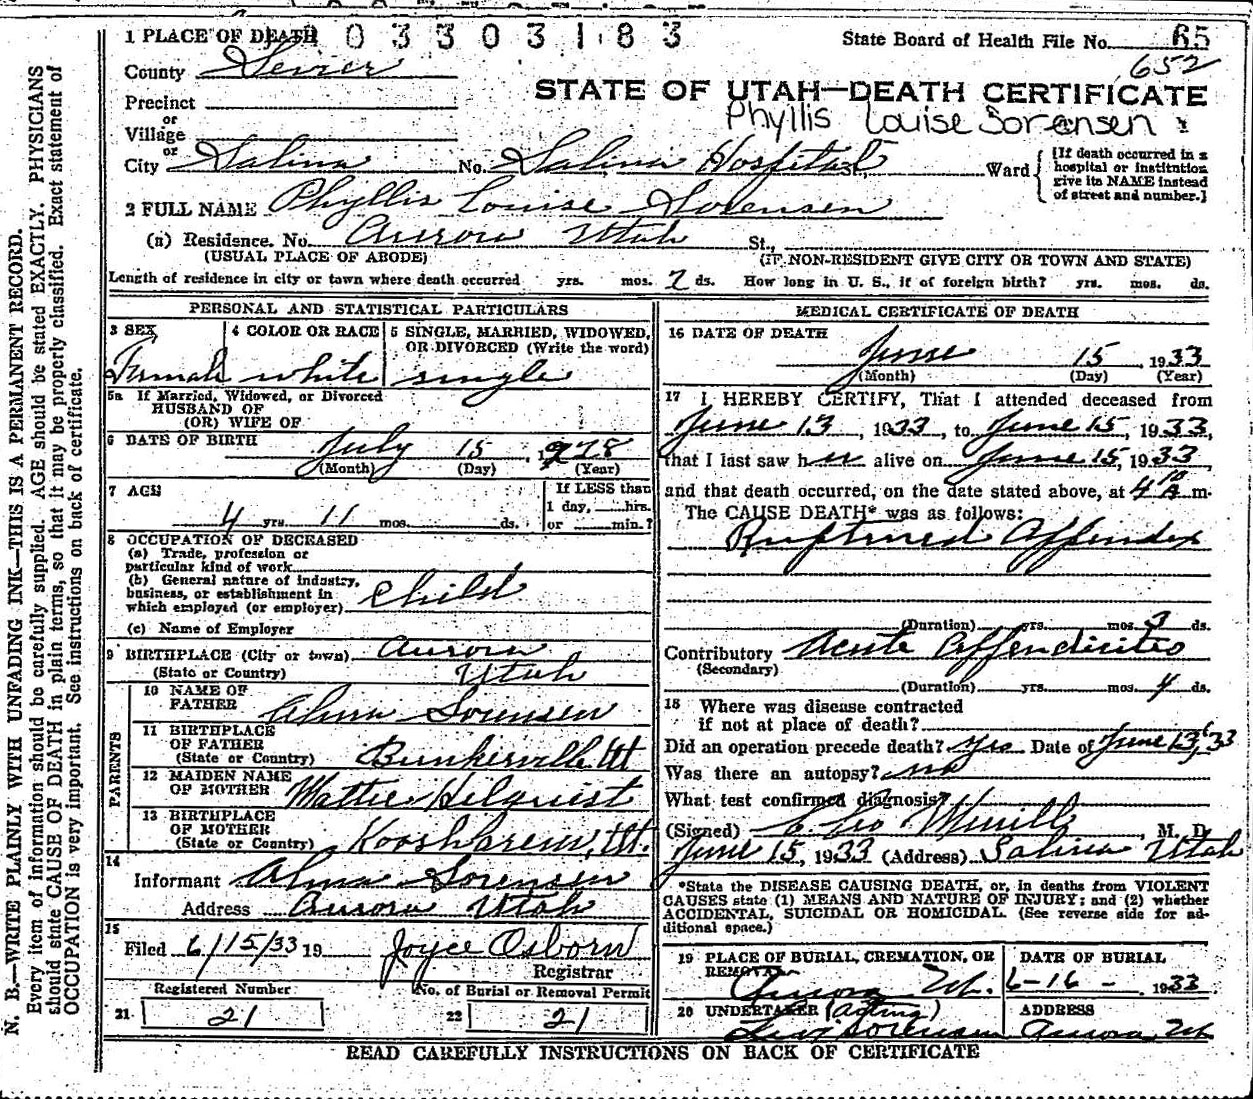 1 PLACE OF DEATH 0 3 3 0 3 1 8 3
State Board of Health File No. 65
652
County Sevier
STATE OF UTAH—DEATH CERTIFICATE
Precinct
or
Phyllis Louise Sorensen
Village
or
City Salina No. Salina Hospital St., Ward
[If death occurred in a hospital or institution give its NAME instead of street and number.]
2 FULL NAME Phyllis Louise Sorensen
(a) Residence. No. Aurora Utah St.,
(USUAL PLACE OF ABODE) (IF NON-RESIDENT GIVE CITY OR TOWN AND STATE)
Length of residence in city or town where death occurred yrs. mos. 2 ds. How long in U. S., if of foreign birth? yrs. mos. ds.
PERSONAL AND STATISTICAL PARTICULARS
3 SEX 4 COLOR OR RACE 5 SINGLE, MARRIED, WIDOWED,
OR DIVORCED (Write the word)
Female white single
5a If Married, Widowed, or Divorced
HUSBAND OF
(OR) WIFE OF
6 DATE OF BIRTH
July 15 1928
(Month) (Day) (Year)
7 AGE
If LESS than
1 day, hrs.
4 yrs. 11 mos. ds. or min.?
8 OCCUPATION OF DECEASED
(a) Trade, profession or
particular kind of work
(b) General nature of industry,
business, or establishment in
which employed (or employer) Child
(c) Name of Employer
9 BIRTHPLACE (City or town) Aurora
(State or Country) Utah
PARENTS
10 NAME OF
FATHER Alma Sorensen
11 BIRTHPLACE
OF FATHER
(State or Country) Bunkerville Ut
12 MAIDEN NAME
OF MOTHER Mattie Hilquist
13 BIRTHPLACE
OF MOTHER
(State or Country) Koosharem, Ut.
14
Informant Alma Sorensen
Address Aurora Utah
15
Filed 6/15/33 19 Joyce Osborn
Registrar
Registered Number No. of Burial or Removal Permit
21 21 22 21
MEDICAL CERTIFICATE OF DEATH
16 DATE OF DEATH
June 15, 1933
(Month) (Day) (Year)
17 I HEREBY CERTIFY, That I attended deceased from
June 13, 1933, to June 15, 1933,
that I last saw her alive on June 15, 1933
and that death occurred, on the date stated above, at 4 10 A m.
The CAUSE DEATH* was as follows:
Ruptured Appendex
(Duration) yrs. mos. 3 ds.
Contributory Acute Appendicites
(Secondary)
(Duration) yrs. mos. 4 ds.
18 Where was disease contracted
if not at place of death?
Did an operation precede death? yes Date of June 13, 33
Was there an autopsy? no
What test confirmed diagnosis?
(Signed) M. D.
June 15, 1933 (Address) Salina Utah
*State the DISEASE CAUSING DEATH, or, in deaths from VIOLENT
CAUSES state (1) MEANS AND NATURE OF INJURY; and (2) whether
ACCIDENTAL, SUICIDAL OR HOMICIDAL. (See reverse side for ad-
ditional space.)
19 PLACE OF BURIAL, CREMATION, OR
REMOVAL
Aurora Ut.
DATE OF BURIAL
6-16-1933
20 UNDERTAKER (Acting)
Sorensen
ADDRESS
Aurora Ut
READ CAREFULLY INSTRUCTIONS ON BACK OF CERTIFICATE
N. B.—WRITE PLAINLY WITH UNFADING INK—THIS IS A PERMANENT RECORD.
Every item of information should be carefully supplied. AGE should be stated EXACTLY. PHYSICIANS
should state CAUSE OF DEATH in plain terms, so that it may be properly classified. Exact statement of
OCCUPATION is very important. See instructions on back of certificate.